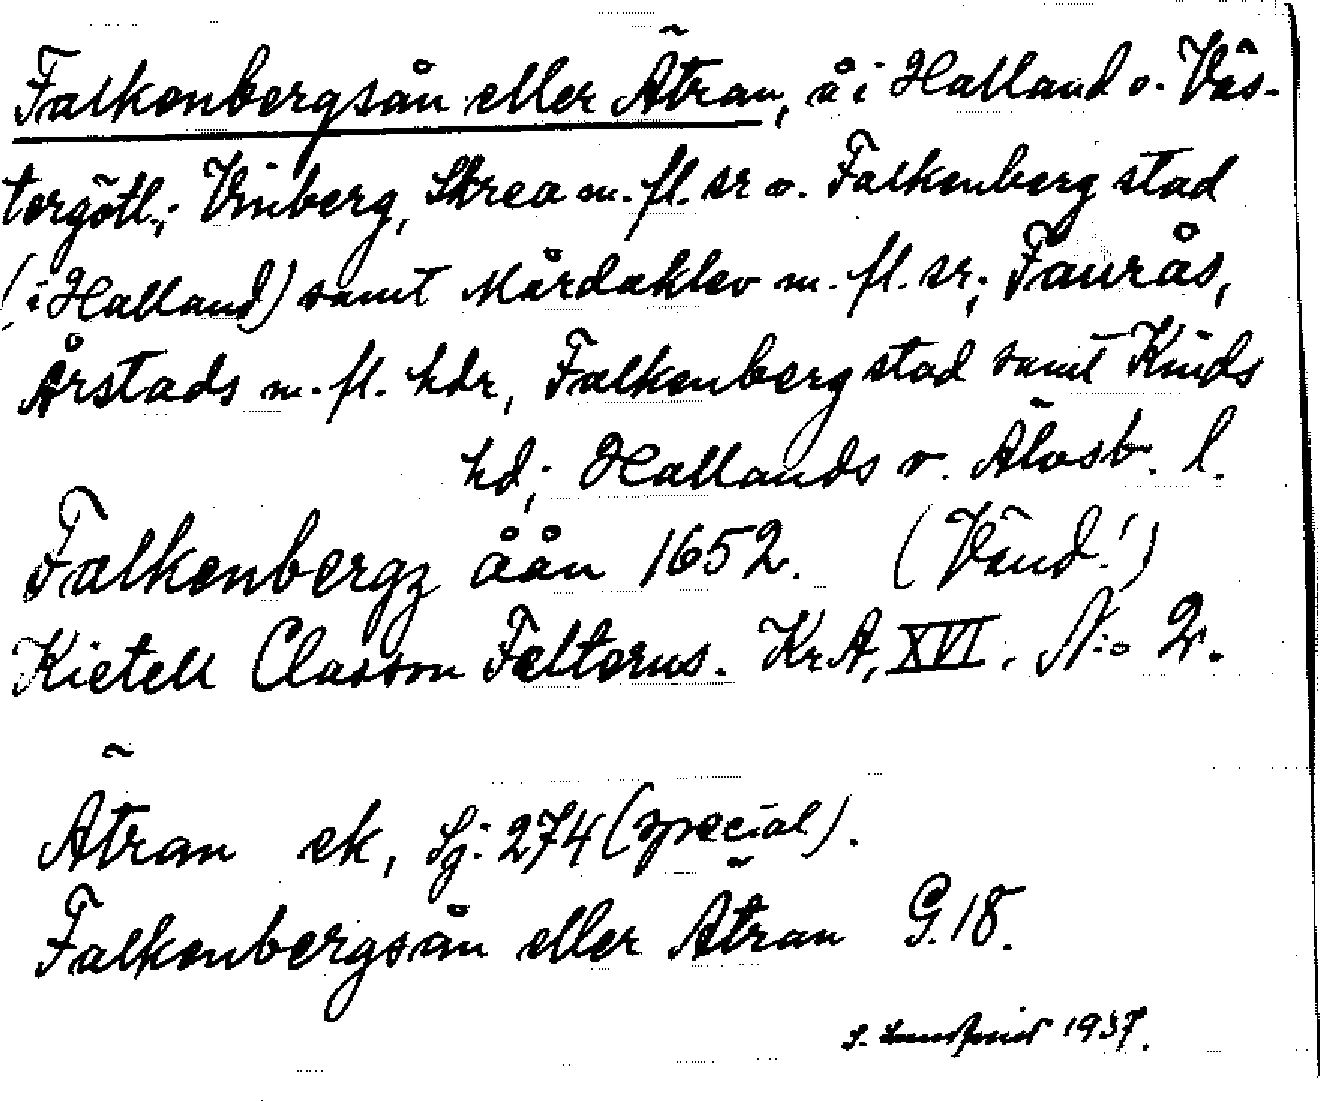 Falkenbergsån eller Ätran, å i Halland o. Väs-
tergötl.; Vinberg, Skrea m. fl. sr o. Falkenberg stad
(i Halland) samt Mårdaklev m. fl. sr; Faurås,
Årstads m. fl. hdr, Falkenberg stad samt Kinds
hd; Hallands o. Älvsb. l.
Falkenbergz åån 1652. (Vänd!)
Kietell Classon Felterus. Kr.A, XVI. N:o 2.
Ätran ek, Sj: 274 (special).
Falkenbergsån eller Ätran G. 18.
S. 1937.